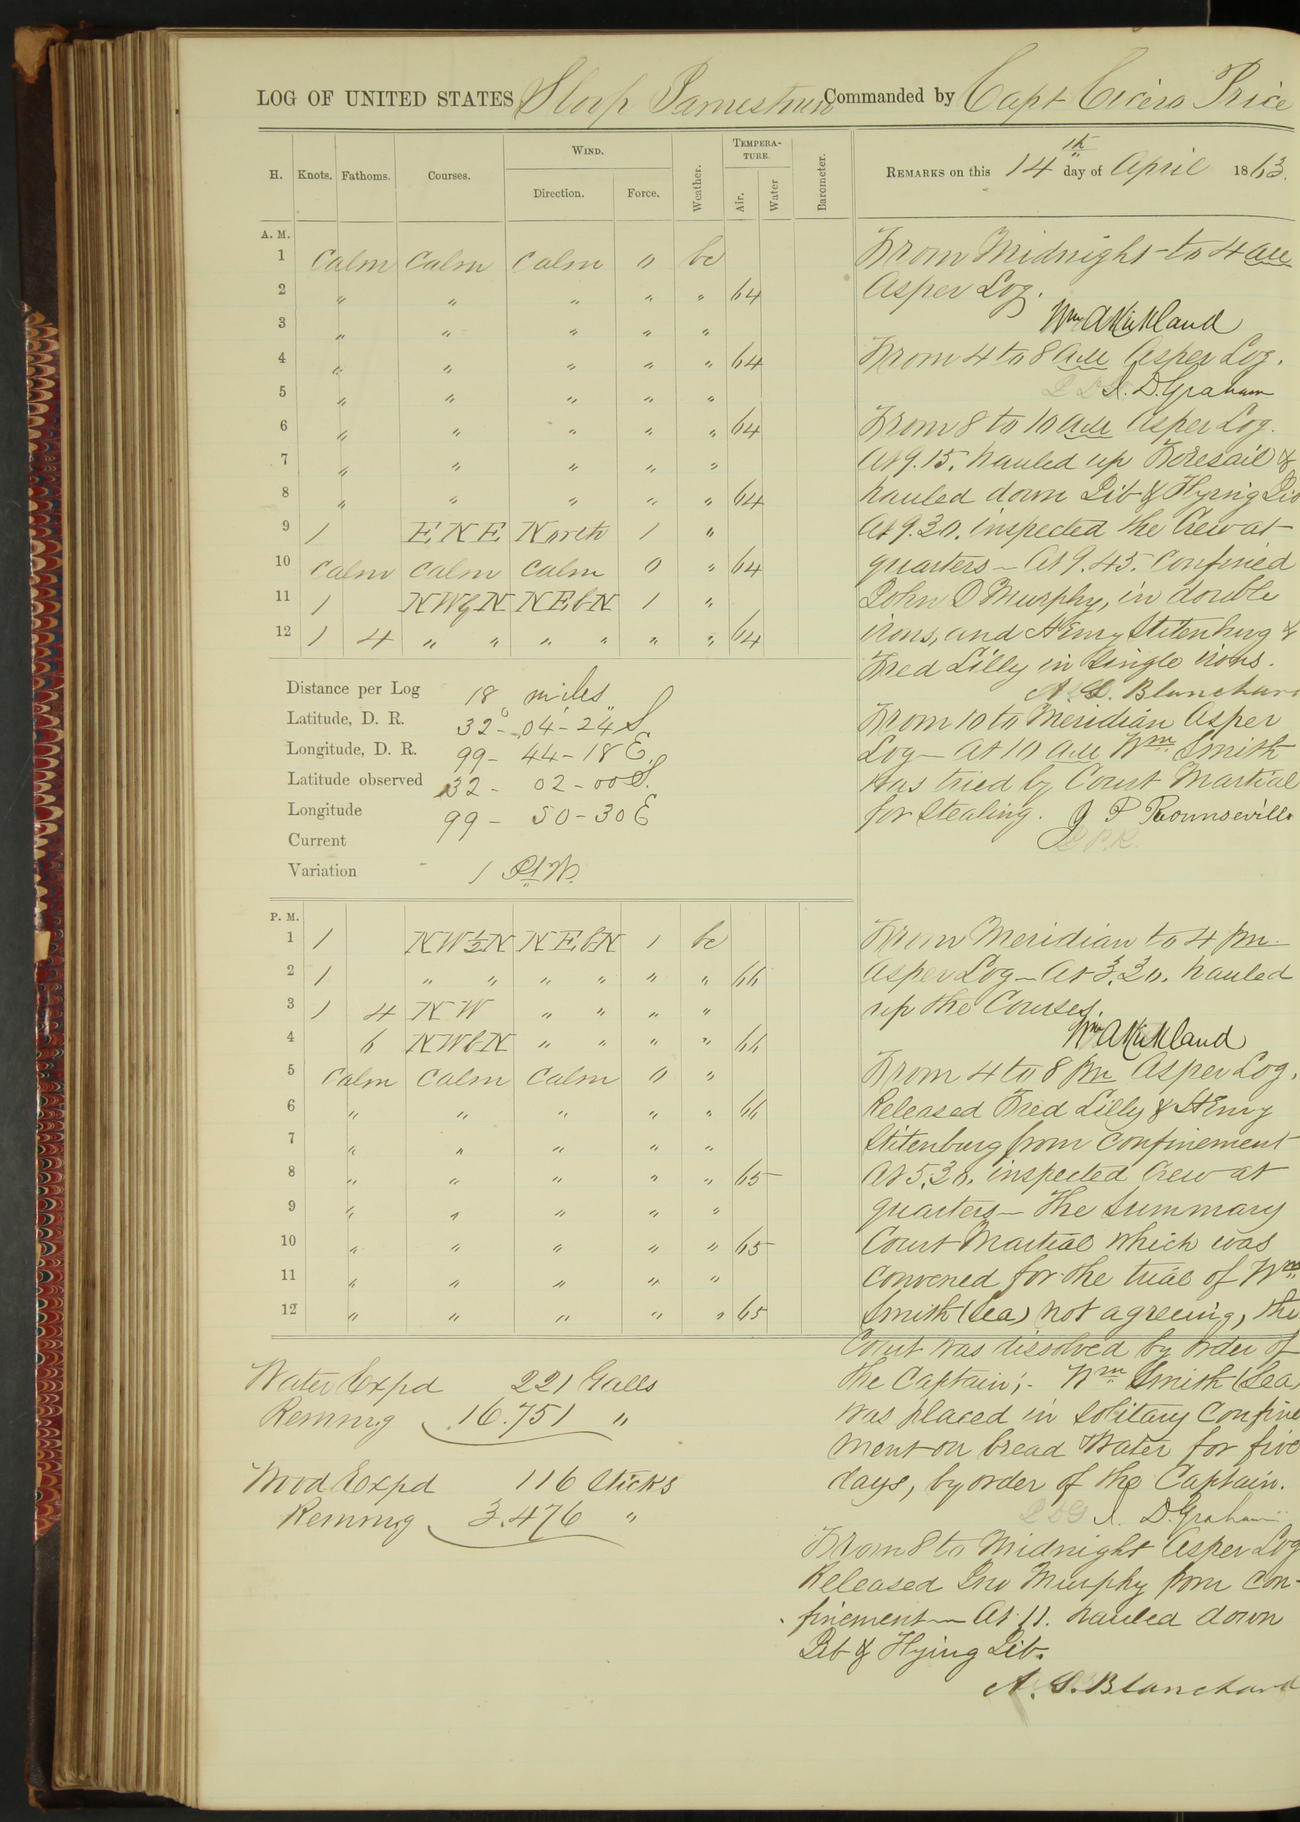 LOG OF UNITED STATES Sloop Jamestown Commanded by Capt Cicero Price
H. Knots. Fathoms. Courses. WIND. Direction. Force. Weather. TEMPERATURE. Air. Water Barometer. REMARKS on this 14th day of April 1863.
A. M.
1 Calm Calm Calm 0 bc
2 " " " " " 64
3 " " " " "
4 " " " " " 64
5 " " " " "
6 " " " " " 64
7 " " " " "
8 " " " " " 64
9 1 ENE North 1 "
10 Calm Calm Calm 0 " 64
11 1 NWbN NEbN 1 "
12 1 4 " " " " " " 64
Distance per Log 18 miles
Latitude, D. R. 32° - 04' - 24" S
Longitude, D. R. 99 - 44 - 18 E.
Latitude observed 32 - 02 - 00 S.
Longitude 99 - 50 - 30 E
Current
Variation 1 Pt W.
From Midnight to 4 am
As per Log.
Wm A Kirkland
From 4 to 8 am As per Log.
I. D. Graham
From 8 to 10 am As per Log.
At 9.15. hauled up Foresail &
hauled down Jib & Flying Jib
At 9.30. inspected the Crew at
quarters — At 9.45. Confined
John D Murphy, in double
irons, and Henry Stitenburg &
Fred Lilly in Single irons.
A. S. Blanchard
From 10 to Meridian As per
Log — At 10 am Wm Smith
was tried by Court Martial
for Stealing. J P Rounseville
P. M.
1 1 NW½N NEbN 1 bc
2 1 " " " " " " 66
3 1 4 NW " " " "
4 6 NWbN " " " " 66
5 Calm Calm Calm 0 "
6 " " " " " 66
7 " " " " "
8 " " " " " 65
9 " " " " "
10 " " " " " 65
11 " " " " "
12 " " " " " 65
From Meridian to 4 pm.
As per Log — At 3.30. hauled
up the Courses.
Wm A Kirkland
From 4 to 8 pm As per Log.
Released Fred Lilly & Henry
Stitenburg from Confinement
At 5.30. inspected Crew at
quarters — The Summary
Court Martial which was
convened for the trial of Wm
Smith (Sea) not agreeing, the
Court was dissolved by order of
the Captain;- Wm Smith (Sea)
was placed in Solitary Confine
ment on bread Water for five
days, by order of the Captain.
I. D. Graham
From 8 to Midnight As per Log
Released Jno Murphy from Con-
finement — At 11. hauled down
Jib & Flying Jib.
A. S. Blanchard
Water Expd 221 Galls
Remng 16.751 "
Wood Expd 116 Sticks
Remng 3.476 "